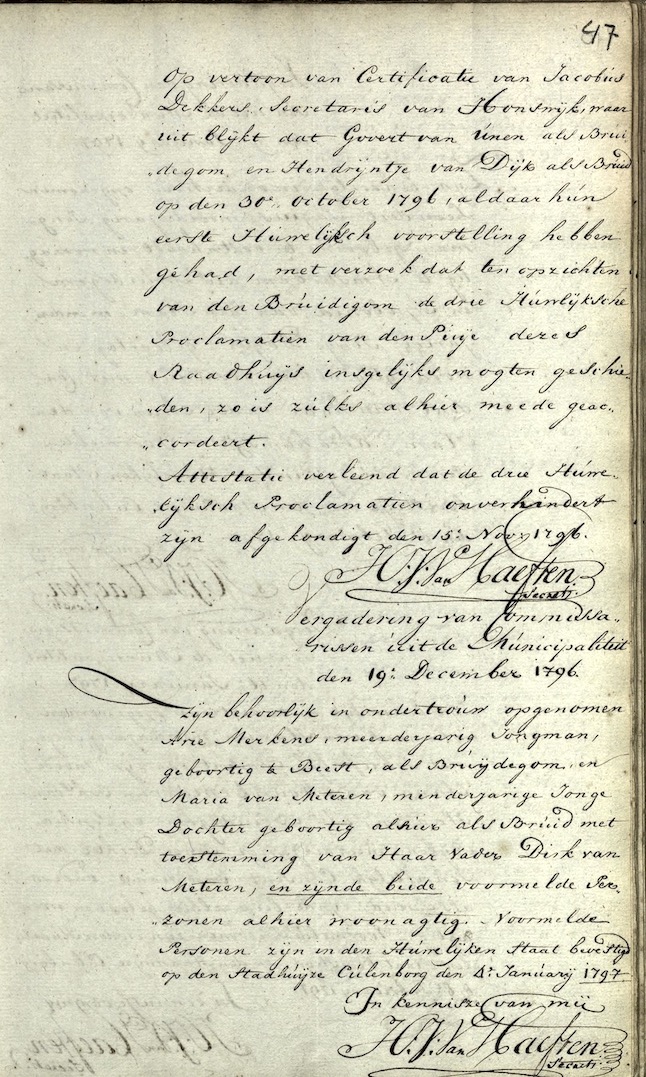 47
Op vertoon van Certificatie van Jacobus
Dekkers, Secretaris van Honswijk, waar
uit blijkt dat Govert van Unen als Brui
„degom en Hendrijntje van Dijk als Bruid
op den 30e. October 1796, aldaar hún
eerste Húwelijksch voorstelling hebben
gehad, met verzoek dat ten opzichten
van den Brúidigom de drie Húwlijksche
Proclamatien van den Puije dezes
Raadhúijs insgelijks mogten geschie„
„den, zo is zúlks alhier meede geac„
„cordeert.
Attestatie verleend dat de drie Húwe„
„lijksch Proclamatien onverhindert
zijn afgekondigt den 15: Novr. 1796.
H. J. Van Haeften
Secrets.
Vergadering van Commissa„
rissen úit de Múnicipaliteit
den 19: December 1796.
Zijn behoorlijk in ondertroúw opgenomen
Arie Merkens, meerderjarig Jongman,
geboortig te Beest, als Bruijdegom, en
Maria van Meteren, minderjarige Jonge
Dochter geboortig alhier als Brúid met
toestemming van Haar Vader Dirk van
Meteren, en zijnde beide voormelde Per
„zonen alhier woonagtig. Voormelde
Personen zijn in den Húwelijken Staat bevestigd
op den Stadhúijze Cúlenborg den 4: Janúarij 1797
In kennisze van mij
H. J. Van Haeften
Secrets.